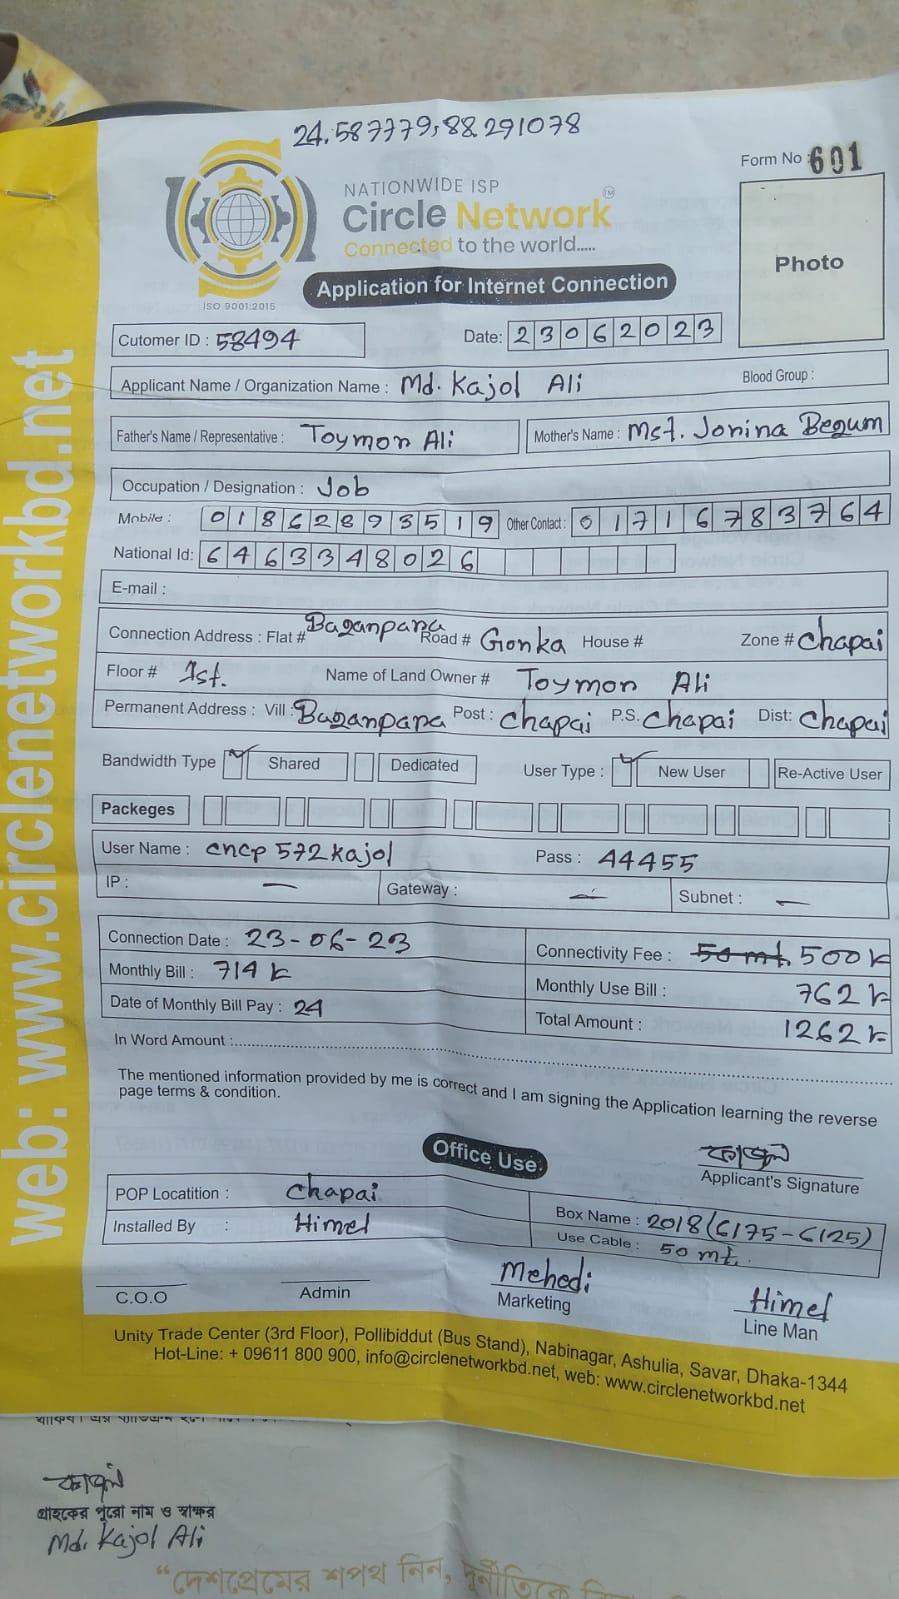 24.587779,88.291078
Form No : 601
NATIONWIDE ISP
Circle Network TM
Connected to the world.....
ISO 9001:2015
Application for Internet Connection
Photo
Cutomer ID : 58494
Date: 23062023
Applicant Name / Organization Name : Md. Kajol Ali Blood Group :
Father's Name / Representative : Toymon Ali Mother's Name : Mst. Jorina Begum
Occupation / Designation : Job
Mobile : 01862893519 Other Contact : 01716783764
National Id: 6463348026
E-mail :
Connection Address : Flat # Baganpara Road # Gonka House # Zone # Chapai
Floor # 1st. Name of Land Owner # Toymon Ali
Permanent Address : Vill : Baganpara Post : Chapai P.S. Chapai Dist: Chapai
Bandwidth Type Shared Dedicated User Type : New User Re-Active User
Packeges
User Name : cncp572kajol Pass : 44455
IP : — Gateway : — Subnet : —
Connection Date : 23-06-23 Connectivity Fee : 50 mt. 500
Monthly Bill : 714 Monthly Use Bill : 762
Date of Monthly Bill Pay : 24 Total Amount : 1262
In Word Amount :
The mentioned information provided by me is correct and I am signing the Application learning the reverse
page terms & condition.
কাজল
Applicant's Signature
Office Use
POP Locatition : Chapai
Installed By : Himel
Box Name : 2018(6175-6125)
Use Cable : 50 mt.
C.O.O Admin Mehedi Marketing Himel Line Man
Unity Trade Center (3rd Floor), Pollibiddut (Bus Stand), Nabinagar, Ashulia, Savar, Dhaka-1344
Hot-Line: + 09611 800 900, info@circlenetworkbd.net, web: www.circlenetworkbd.net
web: www.circlenetworkbd.net
কাজল
গ্রাহকের পুরো নাম ও স্বাক্ষর
Md. Kajol Ali
“দেশপ্রেমের শপথ নিন, দুর্নীতিকে